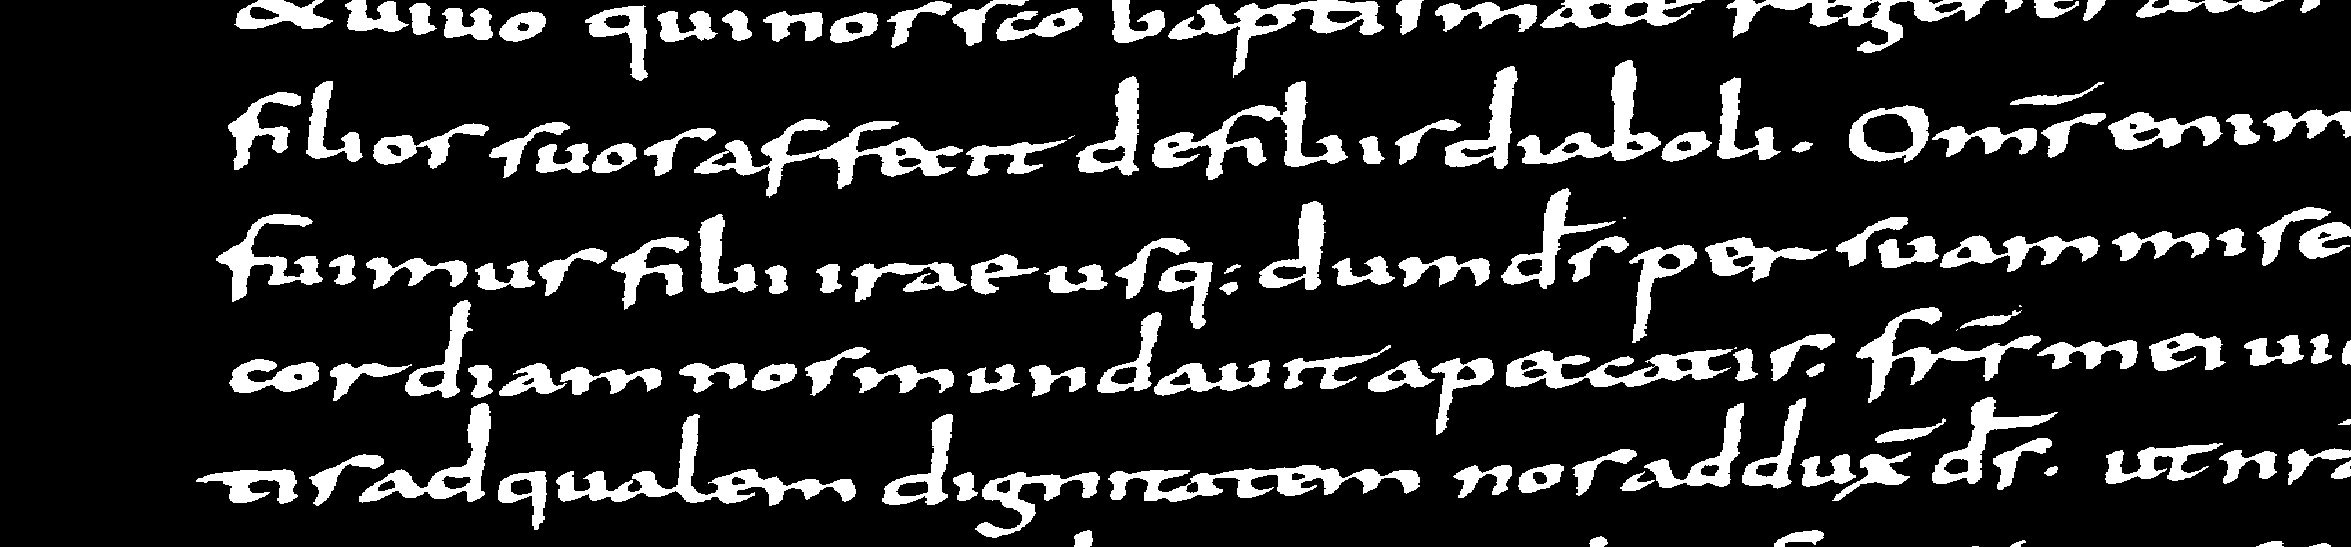 & uiuo qui nos sco baptismate regenerans atq;
filios suos affecit de filiis diaboli. Om̅s enim
fuimus filii irae usq; dum d̅s per suam mise
cordiam nos mundauit a peccatis. fr̅s mei ui
tis ad qualem dignitatem nos addux̅ d̅s. ut nr̅a